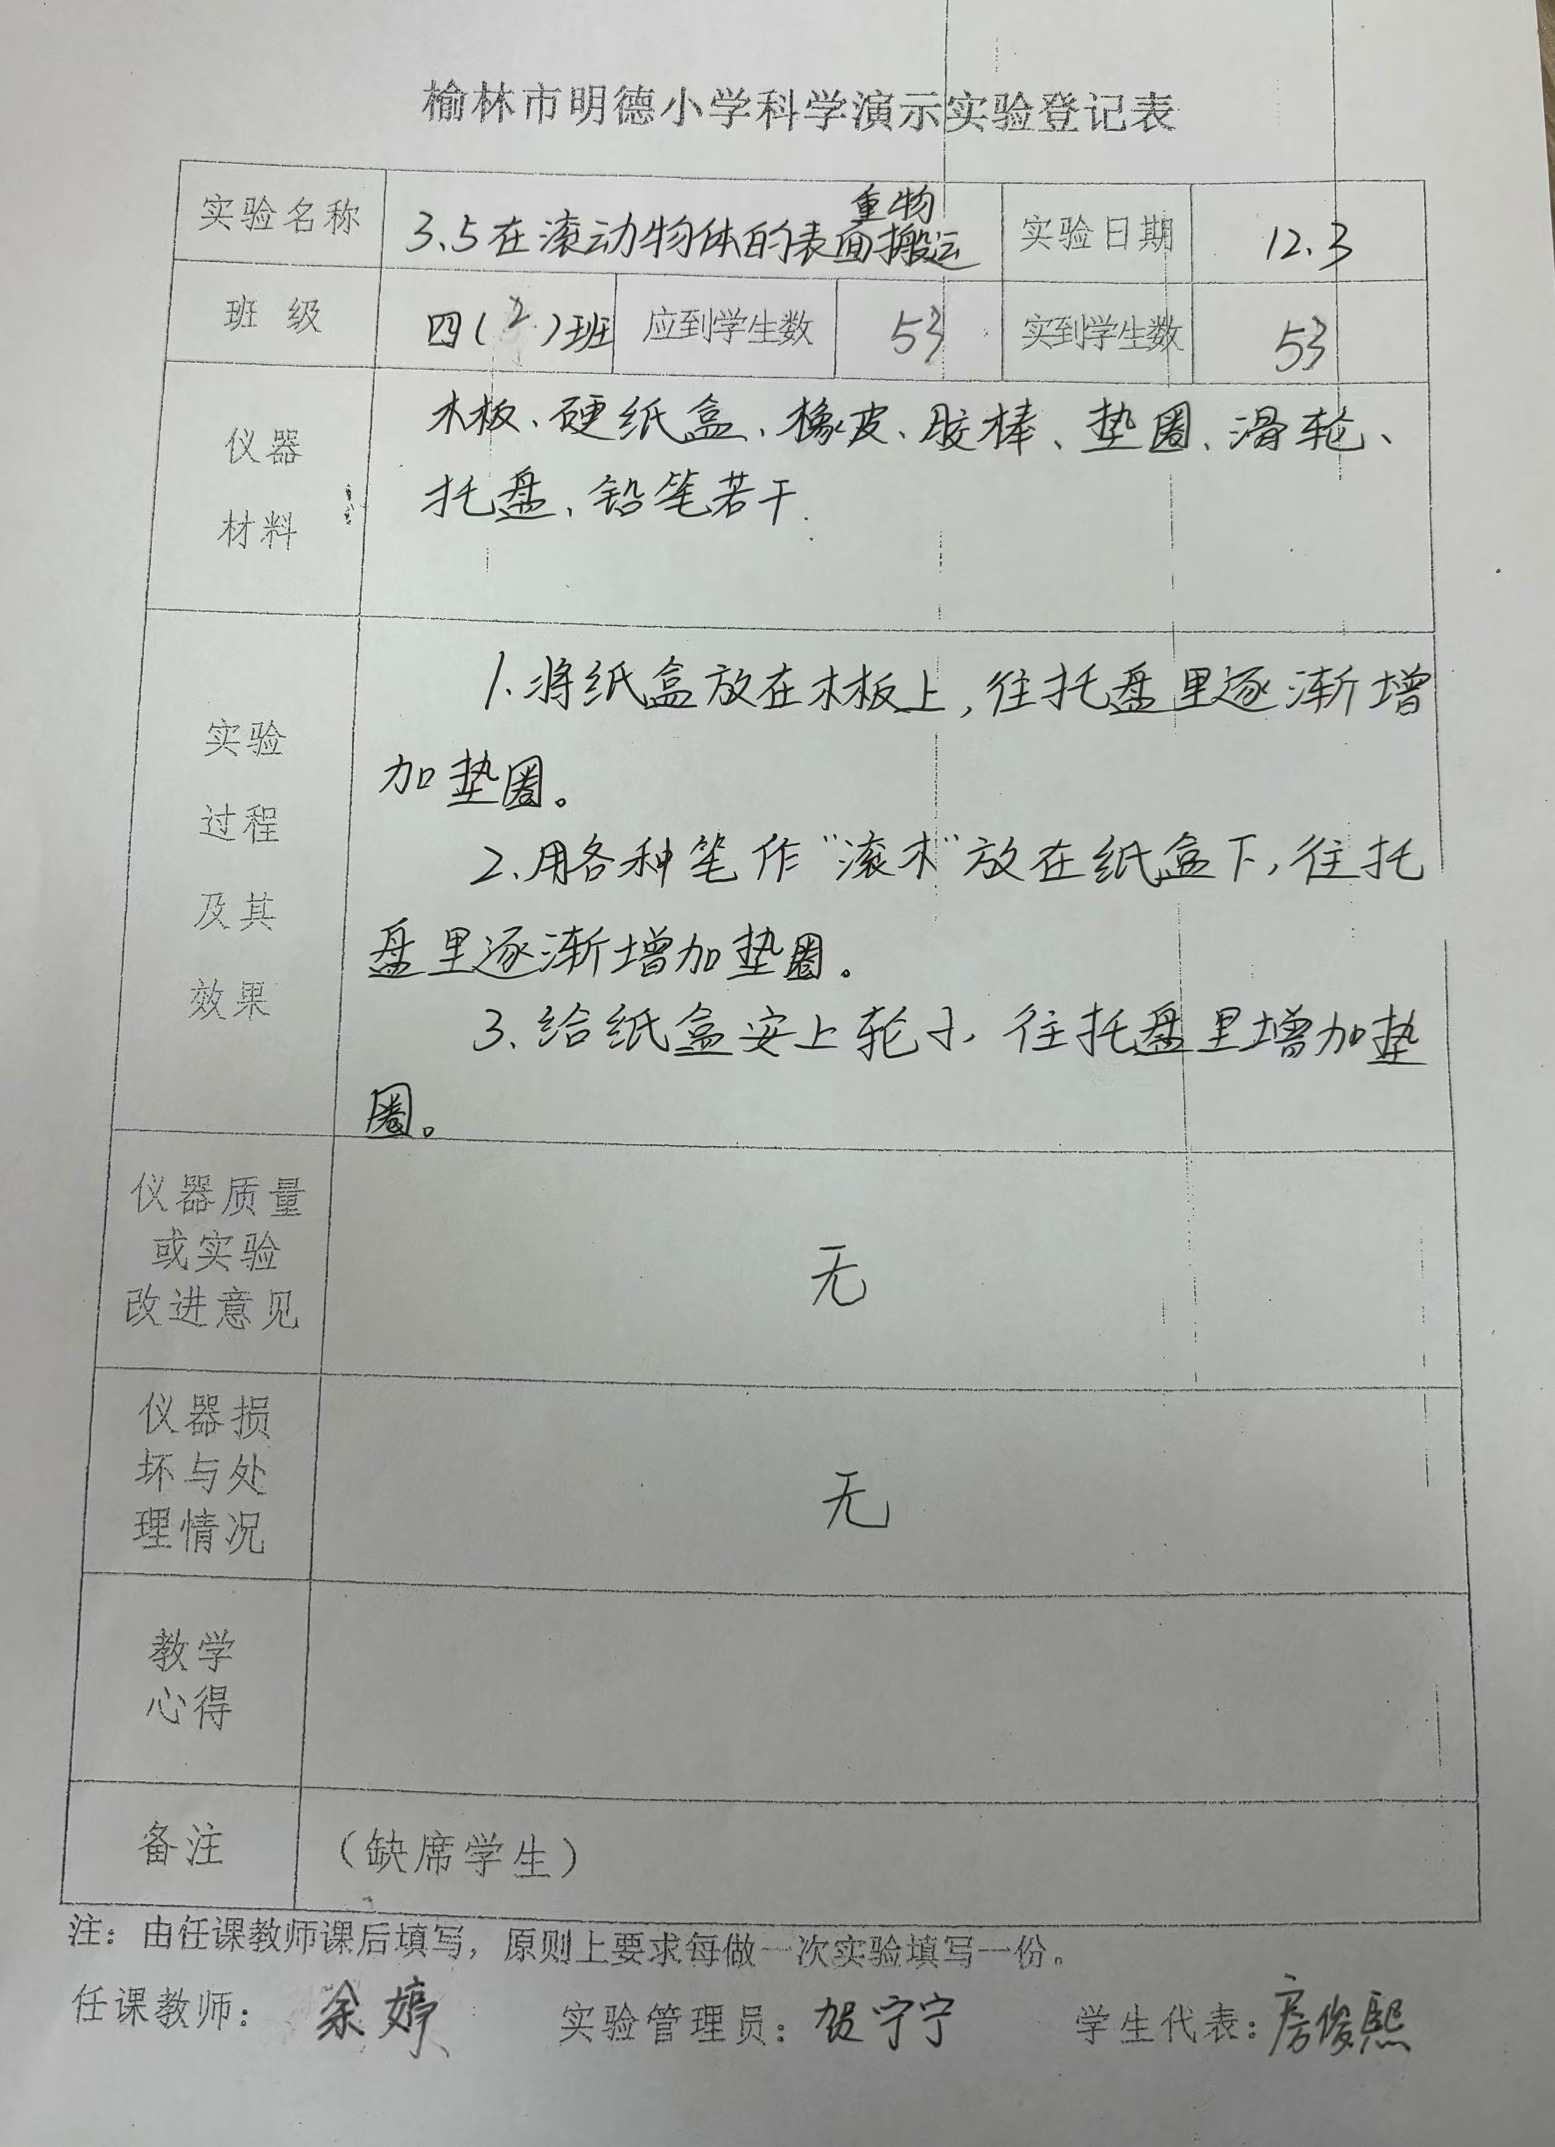 榆林市明德小学科学演示实验登记表
实验名称 3.5在滚动物体的表面搬运重物 实验日期 12.3
班级 四(2)班 应到学生数 53 实到学生数 53
仪器
材料
木板、硬纸盒、橡皮、胶棒、垫圈、滑轮、
托盘、铅笔若干.
实验
过程
及其
效果
1.将纸盒放在木板上,往托盘里逐渐增
加垫圈。
2.用各种笔作“滚木”放在纸盒下,往托
盘里逐渐增加垫圈。
3.给纸盒安上轮子,往托盘里增加垫
圈。
仪器质量
或实验
改进意见
无
仪器损
坏与处
理情况
无
教学
心得
备注 (缺席学生)
注:由任课教师课后填写,原则上要求每做一次实验填写一份。
任课教师: 余婷 实验管理员: 贺宁宁 学生代表: 房俊熙